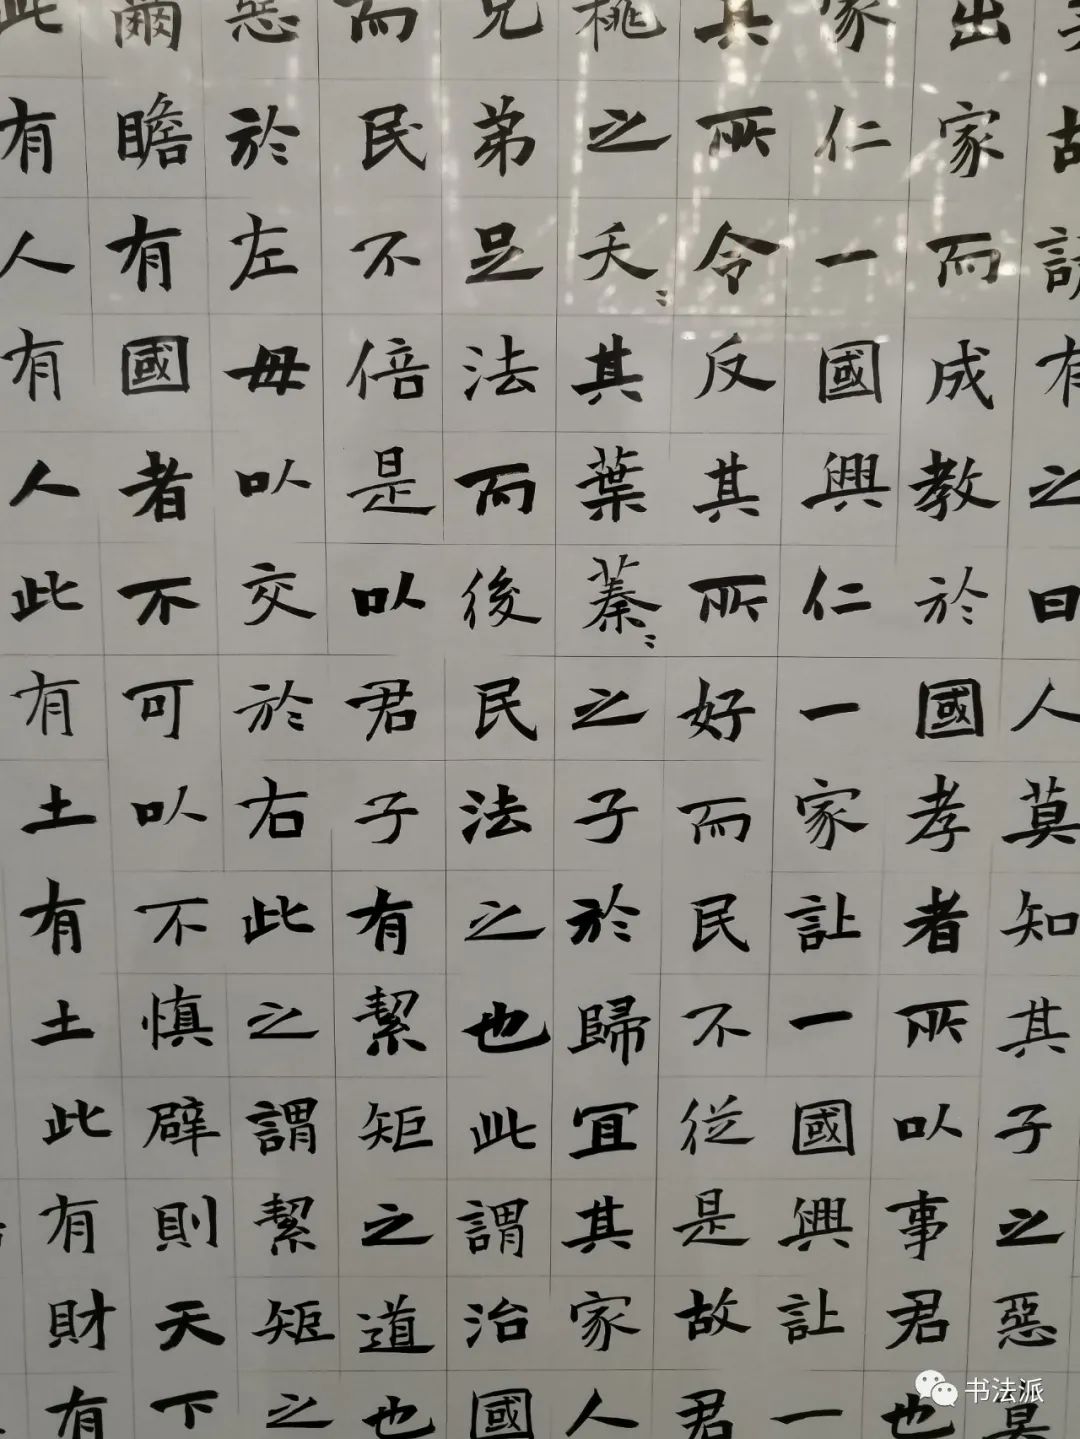 故諺有之曰人莫知其子之惡莫
出家而成教於國孝者所以事君也
家仁一國興仁一家讓一國興讓一
其所令反其所好而民不從是故君
桃之夭〻其葉蓁〻之子於歸宜其家人
兄弟足法而後民法之也此謂治國
而民不倍是以君子有絜矩之道也
惡於左毋以交於右此之謂絜矩之
爾瞻有國者不可以不慎辟則天下
此有人有人此有土有土此有財有
书法派